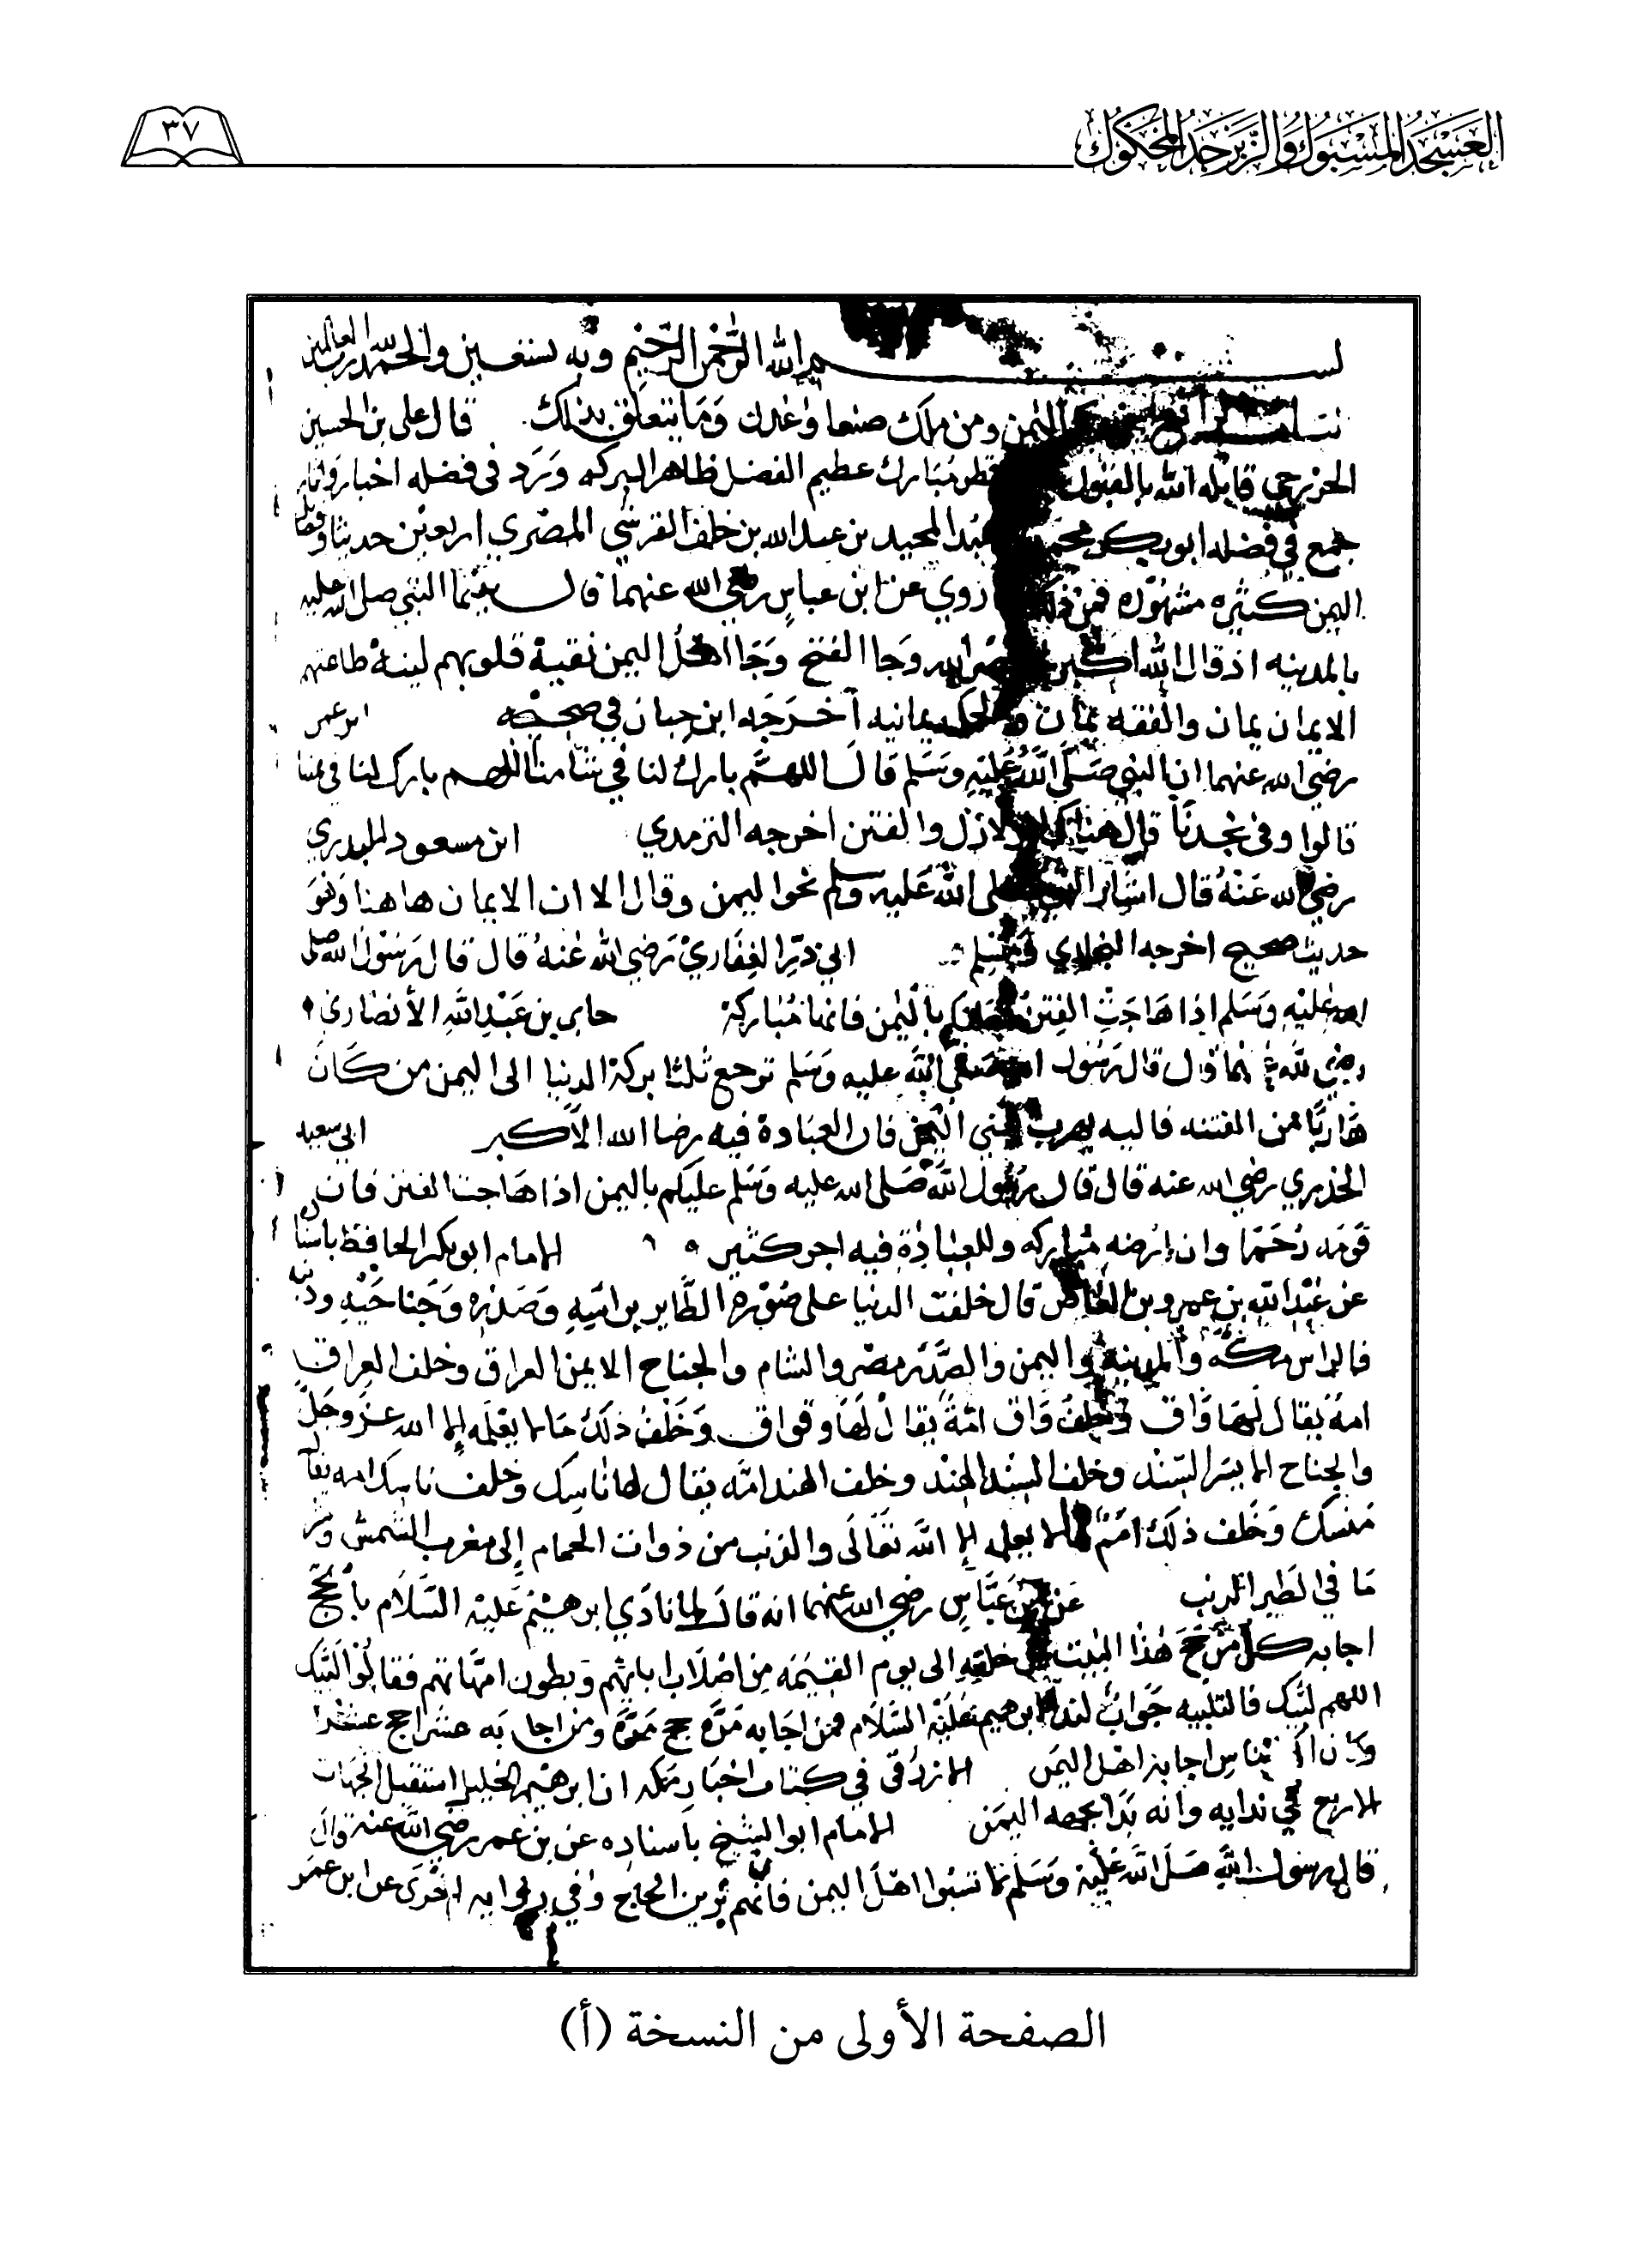 العسجد المسبوك والزبرجد المحكوك
٣٧
بسم الله الرحمن الرحيم وبه نستعين والحمد لله رب العالمين
اليمن ومن ملك صنعا وعدن وما يتعلق بذلك قال علي بن الحسين
الخزرجي قابله الله بالقبول قطر مبارك عظيم الفضل ظاهر البركه ورد في فضله اخبار واثار
جمع في فضله ابو بكر محمد عبد المجيد بن عبد الله بن خلف القرشي المصري اربعين حديثا وفضا
اليمن كثيره مشهوره فمن ذلك روي عن ابن عباس رضي الله عنهما قال بينما النبي صلى الله عليه
بالمدينه اذ قال الله اكبر نصر الله وجا الفتح وجا اهل اليمن نقية قلوبهم لينة طاعتهم
الايمان يمان والفقه يمان والحكمه يمانيه اخرجه ابن حبان في صحيحه ابن عمر
رضي الله عنهما ان النبي صلى الله عليه وسلم قال اللهم بارك لنا في شامنا اللهم بارك لنا في يمننا
قالوا وفي نجدنا قال هناك الزلازل والفتن اخرجه الترمذي ابن مسعود البدري
رضي الله عنه قال اشار النبي صلى الله عليه وسلم نحو اليمن وقال الا ان الايمان هاهنا وهو
حديث صحيح اخرجه البخاري ومسلم ابي ذر الغفاري رضي الله عنه قال قال رسول الله صلى
الله عليه وسلم اذا هاجت الفتن فعليكم باليمن فانها مباركة جابر بن عبد الله الأنصاري
رضي الله عنهما قال قال رسول الله صلى الله عليه وسلم ترجع ثلثا بركة الدنيا الى اليمن من كان
هاربا من الفتنه فاليه يهرب اليمن فان العبادة فيه رضا الله الأكبر ابي سعيد
الخدري رضي الله عنه قال قال رسول الله صلى الله عليه وسلم عليكم باليمن اذا هاجت الفتن فان
قومه رحما وان ارضه مباركه وللعبادة فيه اجر كثير الامام ابو بكر الحافظ باسناده
عن عبد الله بن عمرو بن العاص قال خلقت الدنيا على صورة الطاير براسه وصدره وجناحيه وذنبه
فالراس مكة والمدينه واليمن والصدر مصر والشام والجناح الايمن العراق وخلف العراق
امة يقال لها واق وخلف واق امة يقال لها وقواق وخلف ذلك ما لا يعلمه إلا الله عز وجل
والجناح الايسر السند وخلف السند الهند وخلف الهند امة يقال لها ناسك وخلف ناسك امه يقال
منسك وخلف ذلك امم لا يعلمه إلا الله تعالى والذنب من ذوات الحمام إلى مغرب الشمس وشر
ما في الطير الذنب عن ابن عباس رضي الله عنهما انه قال لما نادى ابرهيم عليه السلام بالحج
اجابه كل من حج هذا البيت من خلقه الى يوم القيمه من اصلاب ابائهم وبطون امهاتهم فقالوا لبيك
اللهم لبيك فالتلبيه جواب لندا ابرهيم عليه السلام فمن اجابه مرة حج مرة ومن اجابه عشرا حج عشرا
وكان اول الناس اجابة اهل اليمن الازرقي في كتاب اخبار مكه ان ابرهيم الخليل استقبل الجهات
الاربع في ندايه وانه بدا بجهه اليمن الامام ابو الشيخ باسناده عن بن عمر رضي الله عنه قال
قال رسول الله صلى الله عليه وسلم لا تسبوا اهل اليمن فانهم زين الحاج وفي روايه اخرى عن ابن عمر
الصفحة الأولى من النسخة (أ)